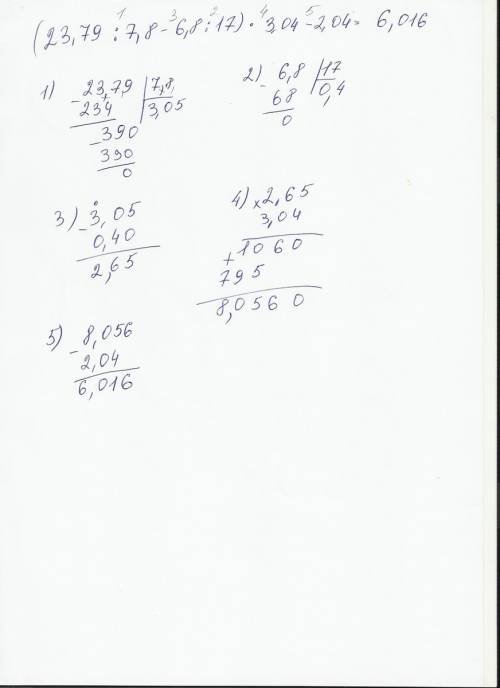 (23,79 : 7,8 - 6,8 : 17) · 3,04 - 2,04 = 6,016
1 3 2 4 5
1) - 23,7,9 | 7,8,
234 3,05
- 390
390
0
2) - 6,8 | 17
68 0,4
0
3) - 3,05
0,40
2,65
4) × 2,65
3,04
+ 1060
795
8,0560
5) - 8,056
2,04
6,016